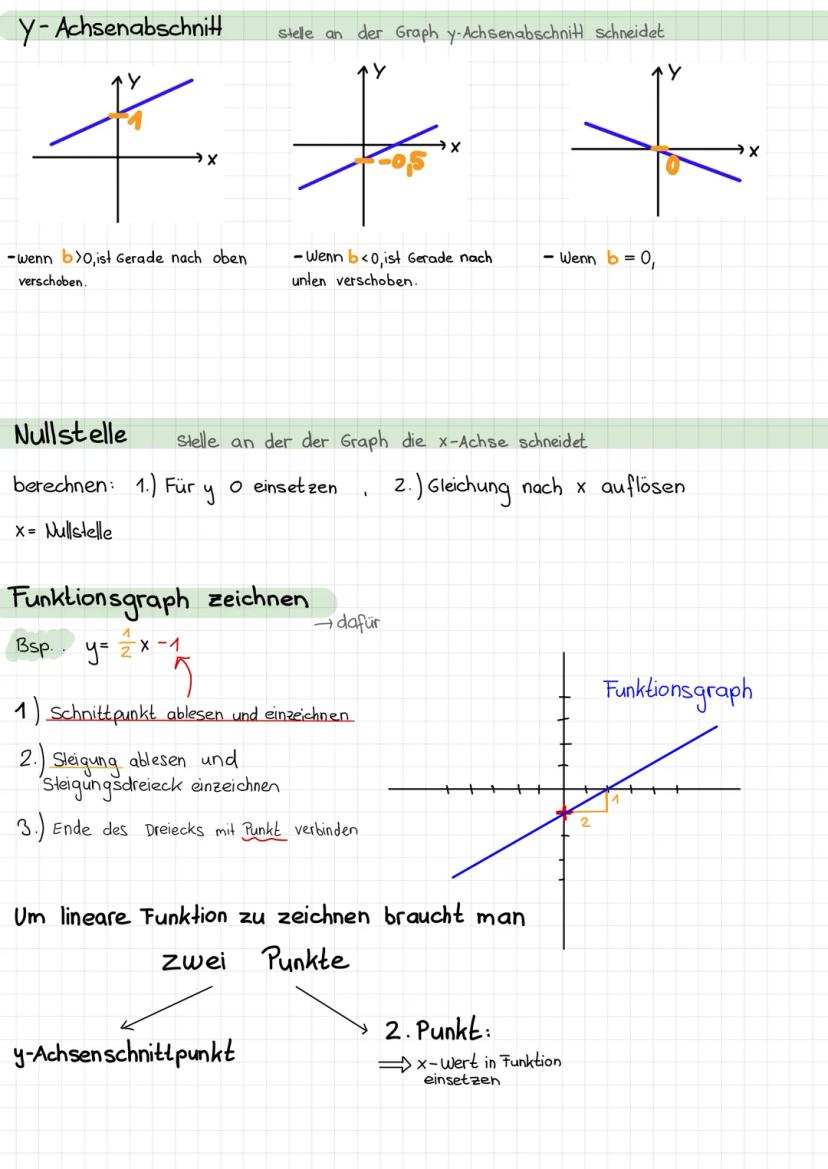 y-Achsenabschnitt
stelle an der Graph y-Achsenabschnitt schneidet
Y
1
x
Y
x
-0,5
Y
x
0
-wenn b>0, ist Gerade nach oben
verschoben.
- Wenn b<0, ist Gerade nach
unten verschoben.
- Wenn b = 0,
Nullstelle
Stelle an der der Graph die x-Achse schneidet
berechnen: 1.) Für y 0 einsetzen , 2.) Gleichung nach x auflösen
x= Nullstelle
Funktionsgraph zeichnen
→ dafür
Bsp.: y= 1/2 x -1
1) Schnittpunkt ablesen und einzeichnen
2.) Steigung ablesen und
Steigungsdreieck einzeichnen
3.) Ende des Dreiecks mit Punkt verbinden
Funktionsgraph
1
2
Um lineare Funktion zu zeichnen braucht man
zwei Punkte
y-Achsenschnittpunkt
2. Punkt:
⇒ x-Wert in Funktion
einsetzen